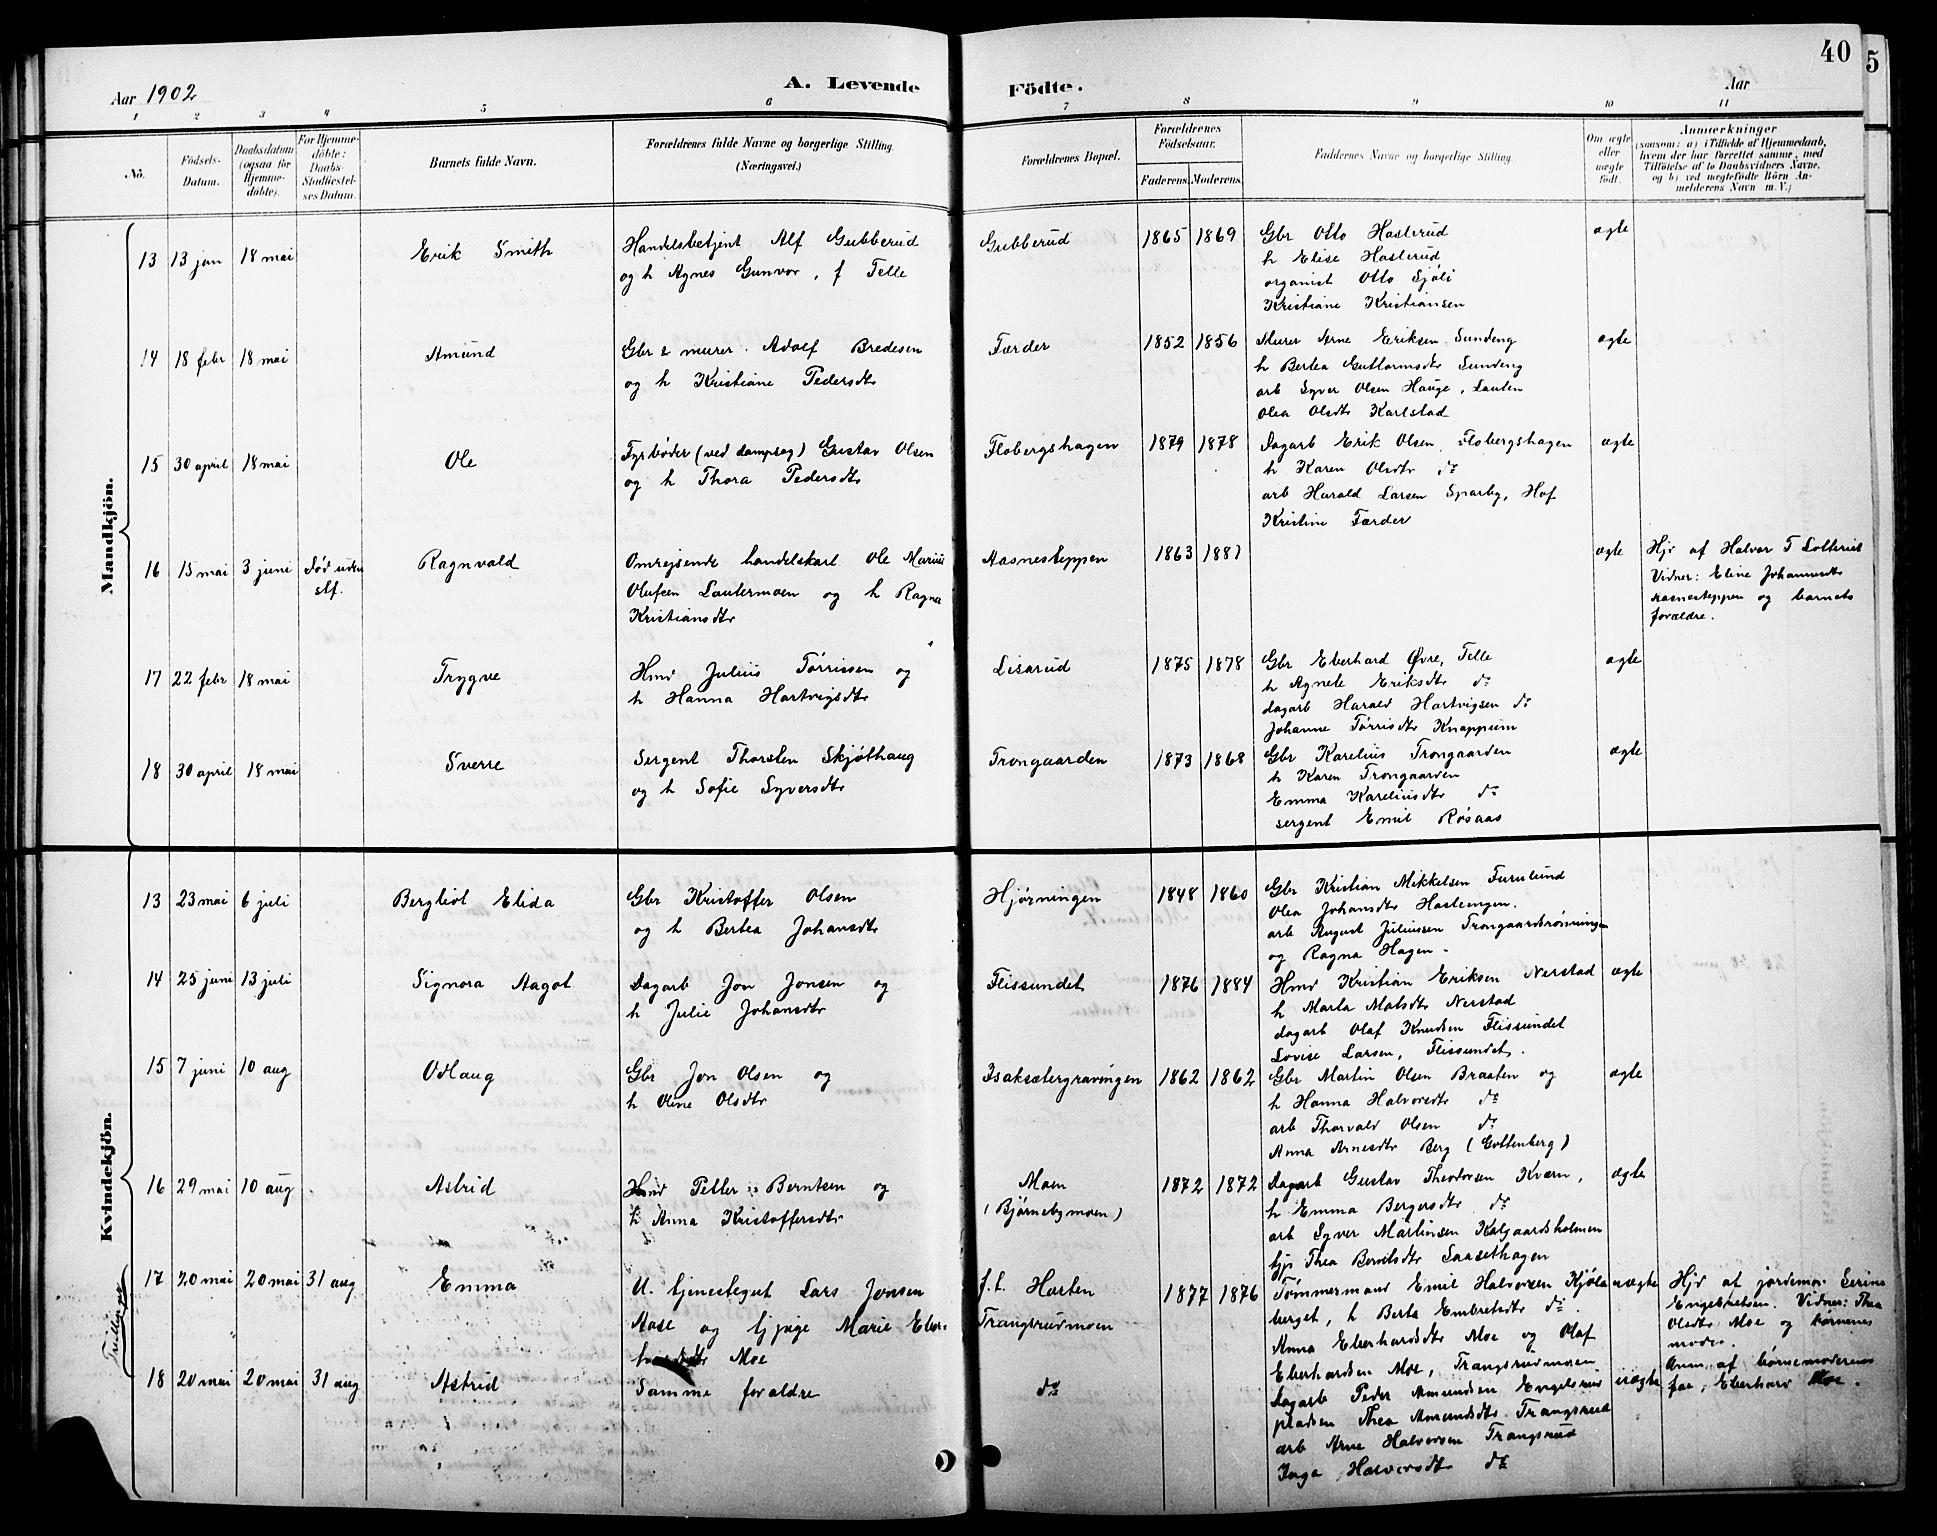 Aar 1902
A. Levende
Födte.
Aar
40
5
1 2 3 4 5 6 7 8 9 10 11
No.
Födsels-
Datum.
Daabsdatum
(ogsaa for
Hjemme-
døbte).
For Hjemme-
döbte:
Daabs-
Stadfæstel-
ses Datum.
Barnets fulde Navn.
Forældrenes fulde Navne og borgerlige Stilling.
(Næringsvei.)
Forældrenes Bopæl.
Forældrenes
Födselsaar.
Faderens. Moderens.
Faddernes Navne og borgerlige Stilling.
Om ægte
eller
uægte
födt.
Anmærkninger
(saasom: a) i Tilfælde af Hjemmedaab,
hvem der har forrettet samme, med
Tilföielse af to Daabsvidners Navne,
og b) ved uægtefödte Börn An-
melderens Navn m. V.)
Mandkjön.
13 13 jan 18 mai Erik Smith
Handelsbetjent Alf Gubberud
og h Agnes Gunvor, f Telle
Gubberud 1865 1869
Gbr Otto Hasterud
h Elise Hasterud
organist Otto Sjöli
Kristiane Kristiansen
ægte
14 18 febr 18 mai Amund
Gbr & murer Adolf Bredesen
og h Kristiane Pedersdtr
Færder 1852 1856
Murer Arne Eriksen Sundeng
h Bertea Guttormsdtr Sundeng
arb Syver Olsen Hauge, Lauten
Olea Olsdtr Karlstad
ægte
15 30 april 18 mai Ole
Fyrbøder (ved dampsag) Gustav Olsen
og h Thora Pedersdtr
Flobergshagen 1879 1878
Dagarb Erik Olsen, Flobergshagen
h Karen Olsdtr do
arb Harald Larsen Sparby, Hof
Kristine Færder
ægte
16 15 mai 3 juni Død uden
stf.
Ragnvald
Omrejsende handelskarl Ole Marius
Olufsen Lautermoen og h Ragna
Kristiansdtr
Aasnesteppen 1863 1881
ægte
Hjv af Halvor T Lotteriet
Vidner: Eline Johannesdtr
Aasnesteppen og barnets
forældre.
17 22 febr 18 mai Trygve
Hmd Julius Tørrissen og
h Hanna Hartvigsdtr
Lisarud 1875 1878
Gbr Eberhard Øvre, Telle
h Agnete Eriksdtr do
dagarb Harald Hartvigsen do
Johanne Tørrisdtr Knappum
ægte
18 30 april 18 mai Sverre
Sergent Thorsten Skjøthaug
og h Sofie Syversdtr
Trongaarden 1873 1868
Gbr Karelius Trongaarden
h Karen Trongaarden
Emma Kareliusdtr do
sergent Emil Røsaas
ægte
Kvindekjön.
13 23 mai 6 juli Bergliot Elida
Gbr Kristoffer Olsen
og h Bertea Johansdtr
Hjørningen 1848 1860
Gbr Kristian Mikkelsen Furulund
Olea Johansdtr Hastengen.
arb August Juliussen Trongaardsrønningen
og Ragna Hagen
14 25 juni 13 juli Signora Aagot
Dagarb Jon Jonsen og
h Julie Johansdtr
Flissundet 1876 1884
Hmd Kristian Eriksen Nerstad
h Marta Matsdtr Nerstad
dagarb Olaf Knudsen Flissundet
Lovise Larsen, Flissundet.
ægte
15 7 juni 10 aug Odlaug
Gbr Jon Olsen og
h Oline Olsdtr
Isaksætergravingen 1862 1862
Gbr Martin Olsen Braaten og
h Hanna Halvorsdtr do
arb Thorvald Olsen do
Anna Arnesdtr Berg (Gottenberg)
ægte
16 29 mai 10 aug Astrid
Hmd Petter Berntsen og
h Anna Kristoffersdtr
Moen
(Bjørnebymoen)
1872 1872
Dagarb Gustav Theodorsen Kværn,
h Emma Bergersdtr do
arb Syver Martinsen Kalgaardsholmen
tjp Thea Berntsdtr Saasethagen
ægte
Trillinger
17 20 mai 20 mai 31 aug Emma
U. tjenestegut Lars Jonsen
Aase og tjpige Marie Eber-
hardsdtr Moe
f. t. Harten
Trangsrudmoen
1877 1876
Tømmermand Emil Halvorsen Kjøla-
berget, h Berta Embretsdtr do.
Anna Eberhardsdtr Moe og Olaf
Eberhardsen Moe, Trangsrudmoen
uægte
Hjv af jordemor Serine
Engebretsen. Vidner: Thea
Olsdtr Moe og barnenes
moder.
Anm af børnemoderens
far, Eberhard Moe.
18 20 mai 20 mai 31 aug Astrid
Samme forældre
do
Dagarb Peder Amundsen Engelsrud
pladsen Thea Amundsdtr Trangsrud
arb Arne Halvorsen Trangsrud
Inga Halvorsdtr do
uægte